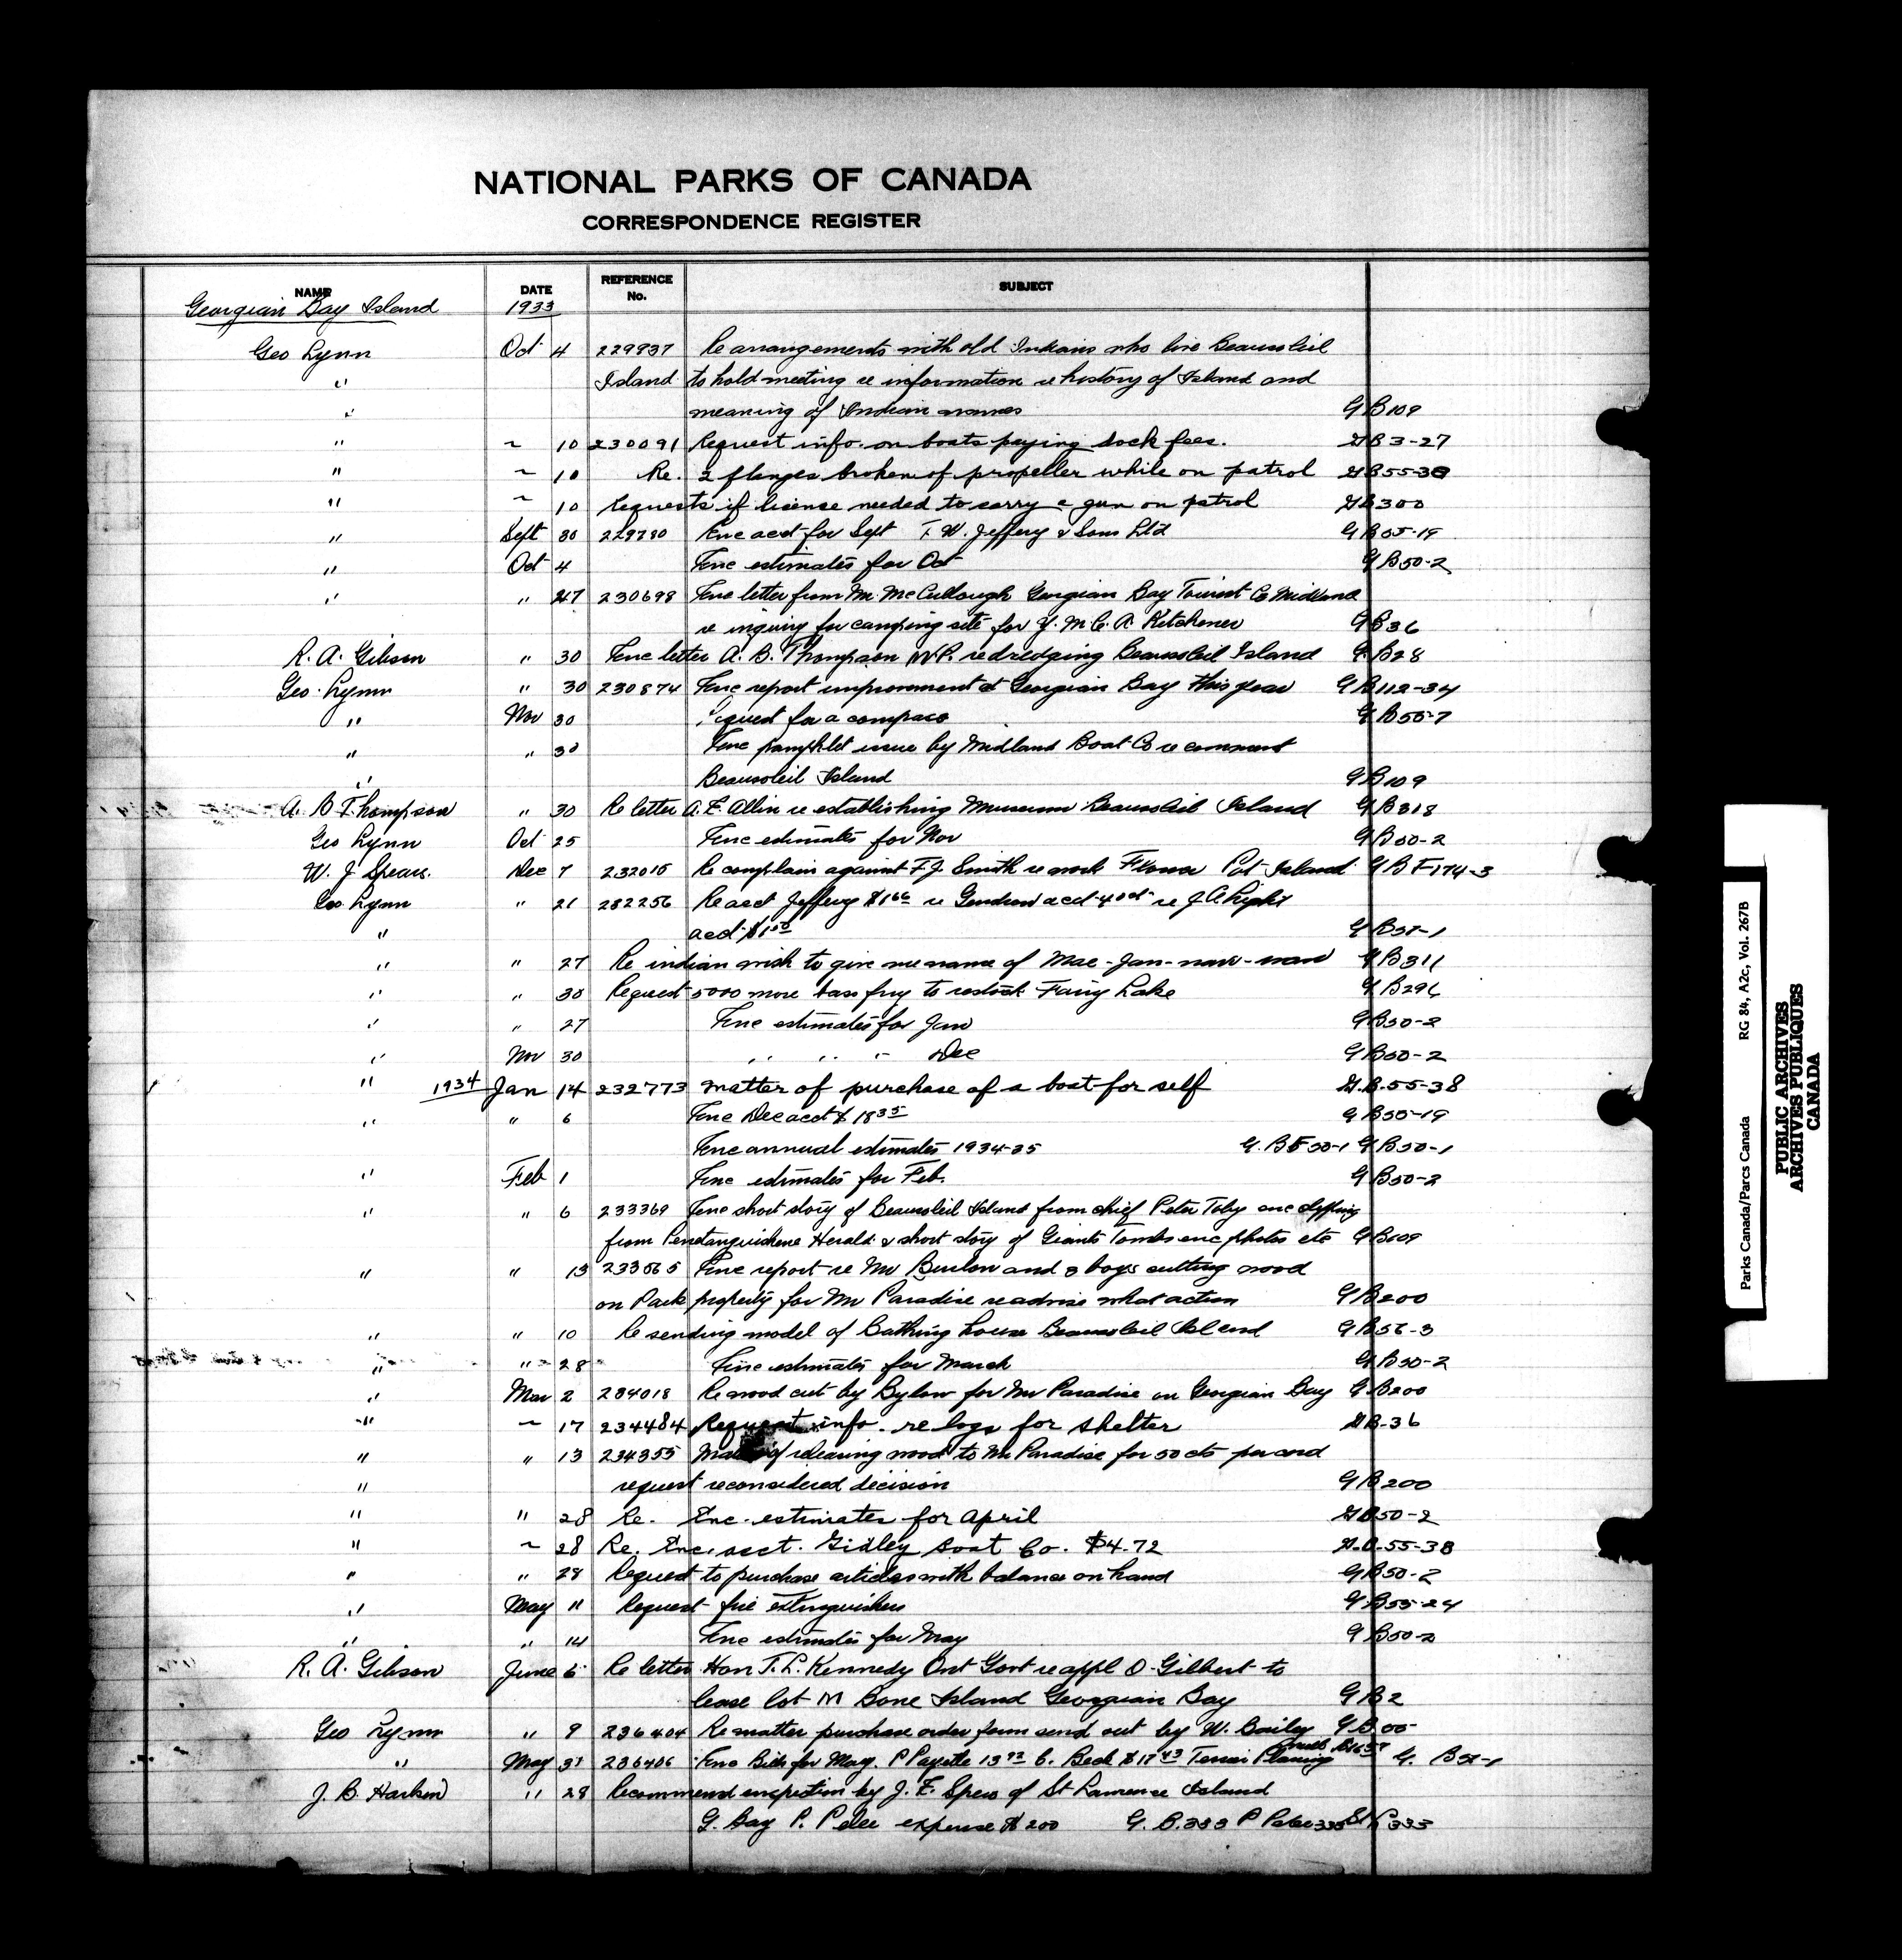 NATIONAL PARKS OF CANADA
CORRESPONDENCE REGISTER
NAME DATE REFERENCE No. SUBJECT
Georgian Bay Island 1933
Geo Lynn Oct 4 229937 Re arrangements with old Indians who live Beausoleil
" Island to hold meeting re information re history of Island and
" meaning of Indian names GB109
" " 10 230091 Request info. on boats paying dock fees. GB3-27
" " 10 Re. 2 flanges broken of propeller while on patrol GB55-38
" " 10 Requests if license needed to carry a gun on patrol GB300
" Sept 30 229780 Enc acct for Sept T. W. Jeffery & Sons Ltd GB55-19
" Oct 4 Enc estimates for Oct GB50-2
" " 27 230698 Enc letter from Mr. McCullough Georgian Bay Tourist Co Midland
re inquiry for camping site for Y. M. C. A. Kitchener GB36
R. A. Gibson " 30 Enc letter A. B. Thompson M.P. re dredging Beausoleil Island GB28
Geo. Lynn " 30 230874 Enc report improvement at Georgian Bay this year GB112-34
" Nov 30 Request for a compass GB55-7
" " 30 Enc pamphlet issue by Midland Boat Co re comment
" Beausoleil Island GB109
A. B Thompson " 30 Re letter A. E. Allin re establishing Museum Beausoleil Island GB318
Geo Lynn Oct 25 Enc estimates for Nov GB50-2
W. J Spears. Dec 7 232015 Re complain against F. J. Smith re work Flower Pot Island GBF174-3
Geo Lynn " 21 232256 Re acct Jeffery re acct re
" acct GB51-1
" " 27 Re indian wish to give me name of GB311
" " 30 Request 5000 more bass fry to restock Fairy Lake GB296
" " 27 Enc estimates for Jan GB50-2
" Nov 30 " " " Dec GB50-2
" 1934 Jan 14 232773 Matter of purchase of a boat for self G.B.55-38
" " 6 Enc Dec acct $18.35 GB55-19
Enc annual estimates 1934-35 G.BF50-1 GB50-1
" Feb 1 Enc estimates for Feb. GB50-2
" " 6 233369 Enc short story of Beausoleil Island from chief Peter Toby enc clipping
from Penetanguishene Herald & short story of Giants Tombs enc photos etc GB109
" " 13 233565 Enc report re Mr and 3 boys cutting wood
on Park property for Mr Paradise re advise what action GB200
" " 10 Re sending model of Bathing house Beausoleil Island GB56-3
" " 28 Enc estimates for March GB50-2
" Mar 2 234018 Re wood cut by Bylow for Mr Paradise on Georgian Bay GB200
" " 17 234484 Request info. re logs for shelter GB-36
" " 13 234355 Matter of releasing wood to Mr Paradise for 50 cts per cord
" request reconsidered decision GB200
" " 28 Re. Enc. estimates for April GB50-2
" " 28 Re. Enc. acct. Gidley Boat Co. $4.72 G.B.55-38
" " 28 Request to purchase articles with balance on hand GB50-2
" May 11 Request fire extinguishers GB55-24
" " 14 Enc estimates for May GB50-2
R. A. Gibson June 6 Re letter Hon T. L. Kennedy Ont Govt re appl O. Gilbert to
lease lot M Bone Island Georgian Bay GB2
Geo Lynn " 9 236404 Re matter purchase order form send out by W. Bailey GB
" May 31 236406 Enc Bills for May. P Payette C. Beck Planing G. B51-1
J. B. Harkin " 28 Recommend inspection by J. E. Spero of St Lawrence Island
G. Bay P. Pelee expense $200 G.B.333 P Pelee 333 St L 333
Parks Canada/Parcs Canada RG 84, A2c, Vol. 267B
PUBLIC ARCHIVES
ARCHIVES PUBLIQUES
CANADA